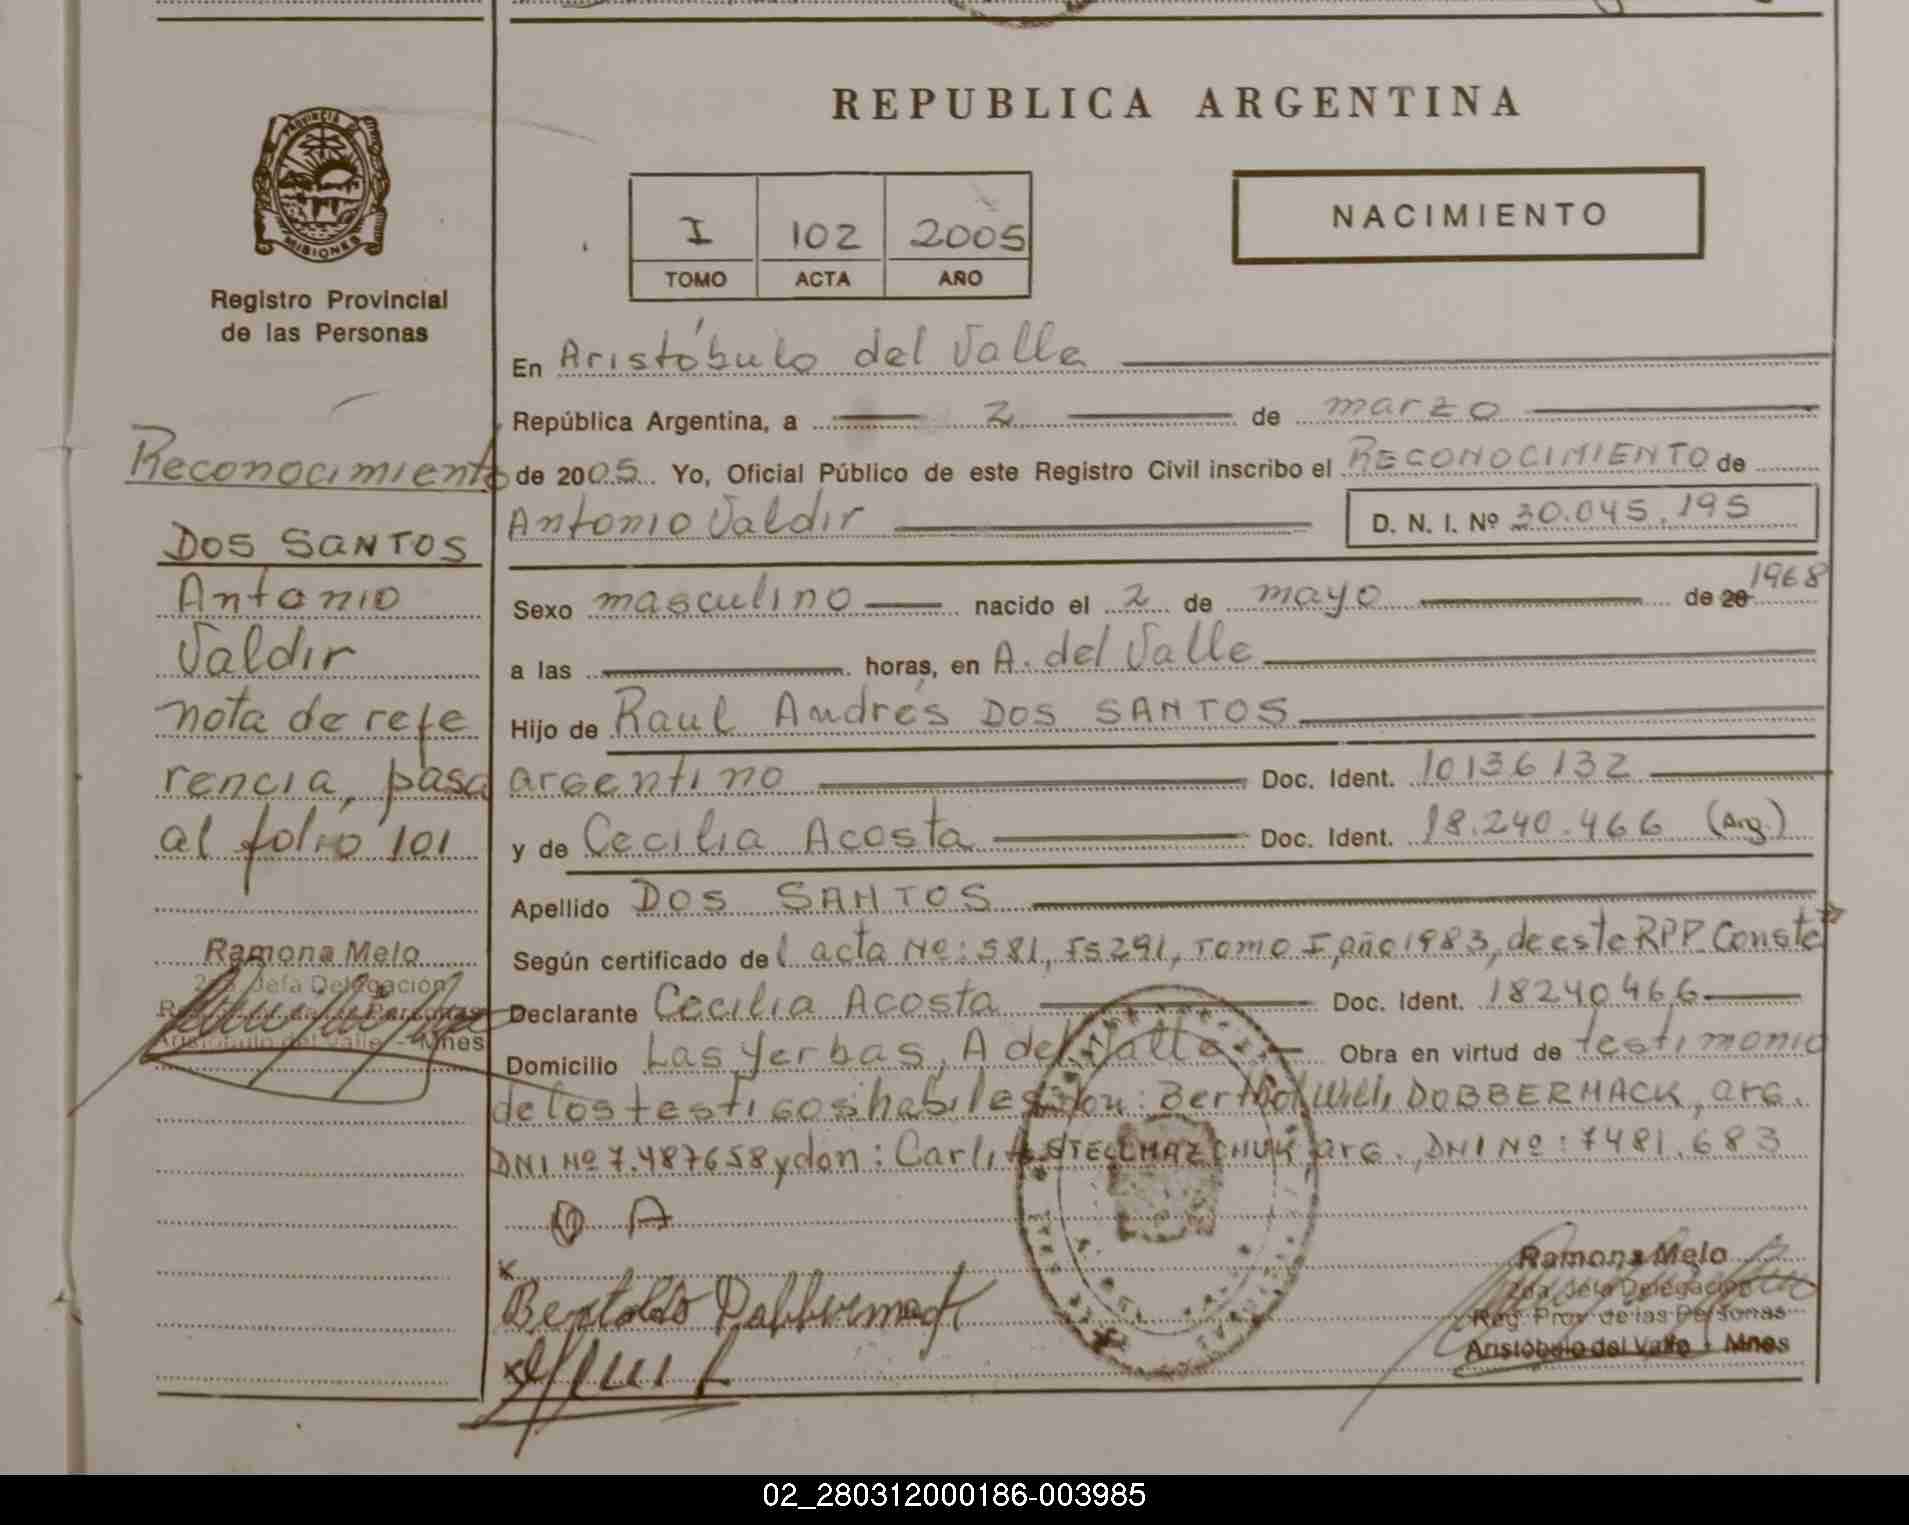 REPUBLICA ARGENTINA
PROVINCIA DE
MISIONES
Registro Provincial
de las Personas
I 102 2005
TOMO ACTA AÑO
NACIMIENTO
Reconocimiento
DOS SANTOS
Antonio
Valdir
nota de refe
rencia, pasa
al folio 101
Ramona Melo
2da. Jefa Delegación
Aristóbulo del Valle - Mnes
En Aristóbulo del Valle
República Argentina, a 2 de marzo
de 2005. Yo, Oficial Público de este Registro Civil inscribo el RECONOCIMIENTO de
Antonio Valdir D. N. I. Nº 30.045.195
Sexo masculino nacido el 2 de mayo de 20 1968
a las horas, en A. del Valle
Hijo de Raul Andrés DOS SANTOS
argentino Doc. Ident. 10136132
y de Cecilia Acosta Doc. Ident. 18.240.466 (Arg.)
Apellido DOS SANTOS
Según certificado del acta Nº: 581, Fs 291, Tomo I, año 1983, de este RPP. Conste
Declarante Cecilia Acosta Doc. Ident. 18240466
Domicilio Las Yerbas, A del Valle Obra en virtud de testimonio
de los testigos habiles don: Berthol Willi DOBBERMACK, arg.
DNI Nº 7.487658 y don: Carlito STECLMAZCHUK, arg., DNI Nº: 7481.683
A
Bertoldo Dabbermack
Ramona Melo
2da. Jefa Delegación
Reg. Prov. de las Personas
Aristóbulo del Valle - Mnes
02_280312000186-003985